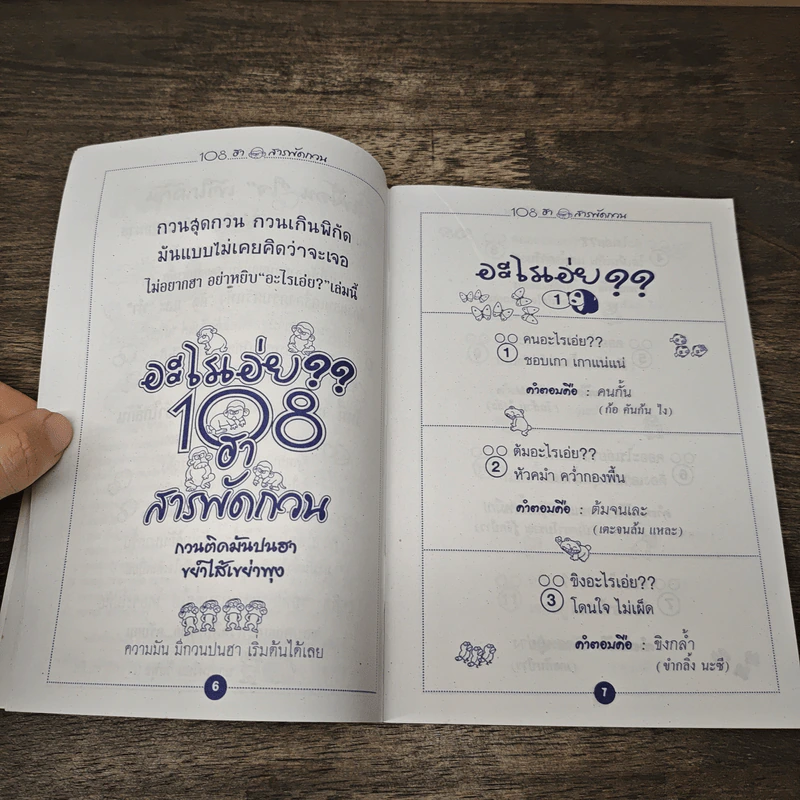 108 ฮา สารพัดกวน
กวนสุดกวน กวนเกินพิกัด
มันแบบไม่เคยคิดว่าจะเจอ
ไม่อยากฮา อย่าหยิบ"อะไรเอ่ย?"เล่มนี้
อะไรเอ่ย??
108
ฮา
สารพัดกวน
กวนติดมันปนฮา
ขยำไส้เขย่าพุง
ความมัน มีกวนปนฮา เริ่มต้นได้เลย
6
108 ฮา สารพัดกวน
อะไรเอ่ย??
1
คนอะไรเอ่ย??
1 ชอบเกา เกาแน่แน่
คำตอบคือ : คนกั้น
(ก้อ คันก้น ไง)
ต้มอะไรเอ่ย??
2 หัวคมำ คว่ำกองพื้น
คำตอบคือ : ต้มจนเละ
(เตะจนล้ม แหละ)
ขิงอะไรเอ่ย??
3 โดนใจ ไม่เผ็ด
คำตอบคือ : ขิงกล้ำ
(ขำกลิ้ง นะซี)
7